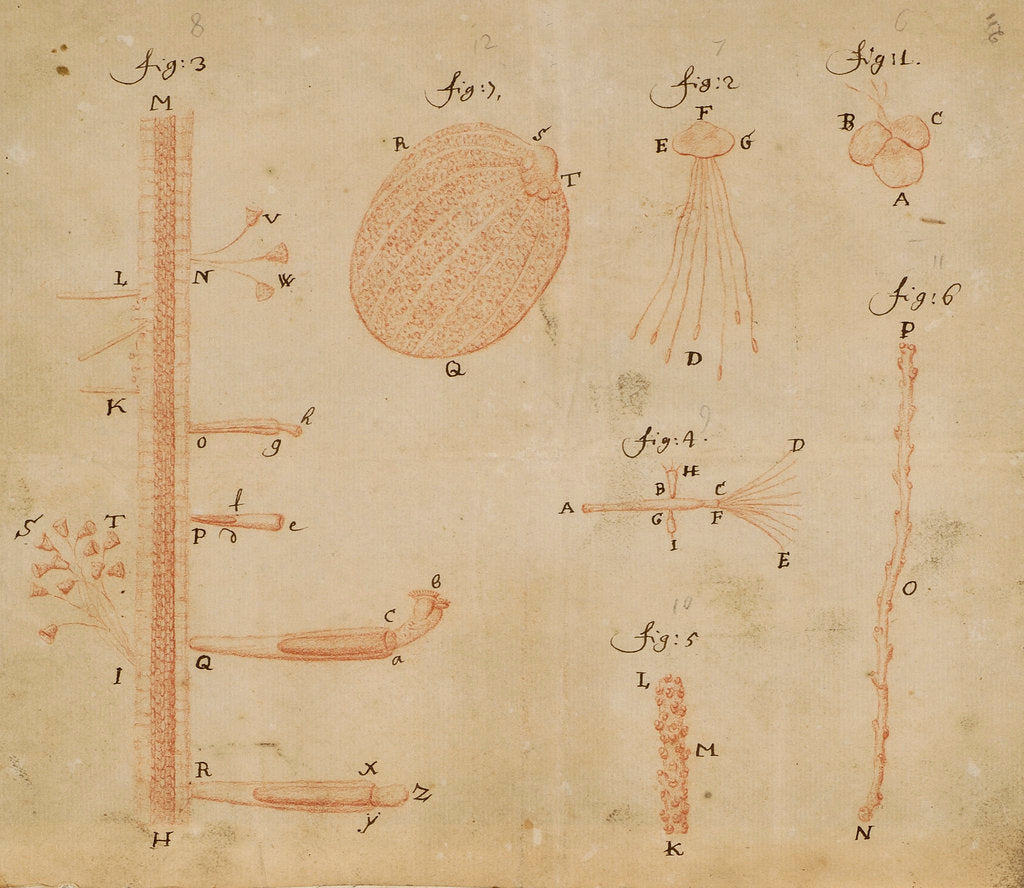 8
fig: 3
M
L
N
V
W
K
O
g
h
S
T
P
f
d
e
I
Q
C
B
a
R
X
y
Z
H
12
fig: 7,
R
S
T
Q
7
fig: 2
F
E
G
D
6
fig: 1.
B
C
A
9
fig: 4.
A
B
H
C
D
G
I
F
E
10
fig: 5
L
M
K
11
fig: 6
P
O
N